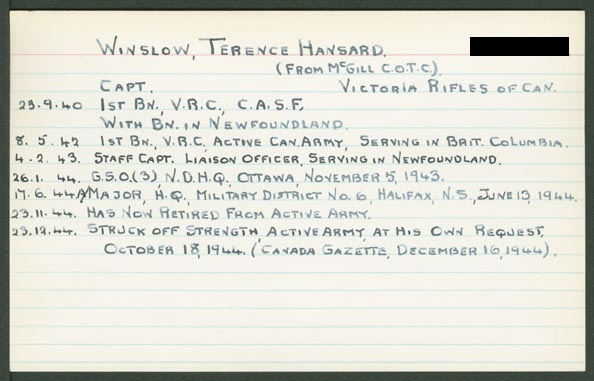 WINSLOW, TERENCE HANSARD.
(FROM McGILL C.O.T.C.)
CAPT. VICTORIA RIFLES OF CAN.
23.9.40 1ST BN., V.R.C., C.A.S.F.
WITH BN. IN NEWFOUNDLAND.
8. 5. 42 1ST BN., V.R.C, ACTIVE CAN. ARMY, SERVING IN BRIT. COLUMBIA.
4. 2. 43. STAFF CAPT. LIAISON OFFICER, SERVING IN NEWFOUNDLAND.
26.1. 44. G.S.O.(3) N.D.H.Q., OTTAWA, NOVEMBER 5, 1943.
17. 6. 44. A/MAJOR, H.Q., MILITARY DISTRICT NO. 6, HALIFAX, N.S., JUNE 13, 1944.
23.11.44. HAS NOW RETIRED FROM ACTIVE ARMY.
23.12.44. STRUCK OFF STRENGTH, ACTIVE ARMY, AT HIS OWN REQUEST,
OCTOBER 18, 1944. (CANADA GAZETTE, DECEMBER 16, 1944).